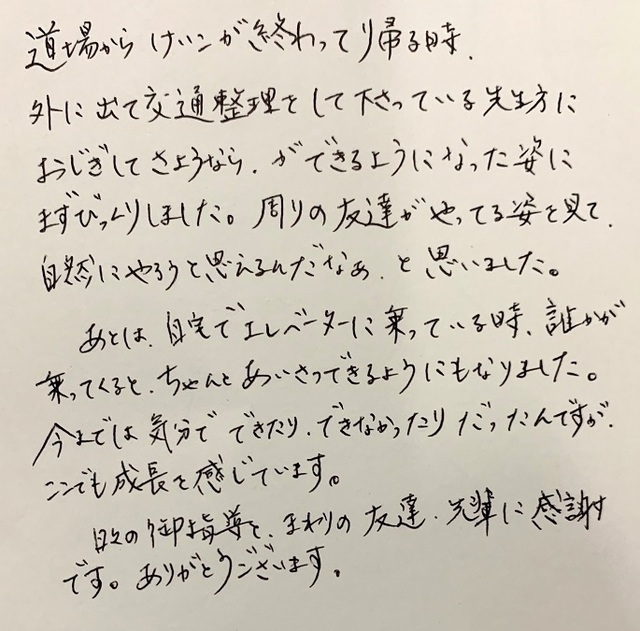 道場から けいこが終わって帰る時、
外に出て交通整理をして下さっている先生方に
おじぎしてさようなら、ができるようになった姿に
まずびっくりしました。周りの友達がやってる姿を見て、
自然にやろうと思えるんだなぁ、と思いました。
あとは、自宅でエレベーターに乗っている時、誰かが
乗ってくると、ちゃんとあいさつできるようにもなりました。
今までは気分で できたり、できなかったり だったんですが、
ここでも成長を感じています。
日々の御指導と、まわりの友達、先輩に感謝
です。ありがとうございます。